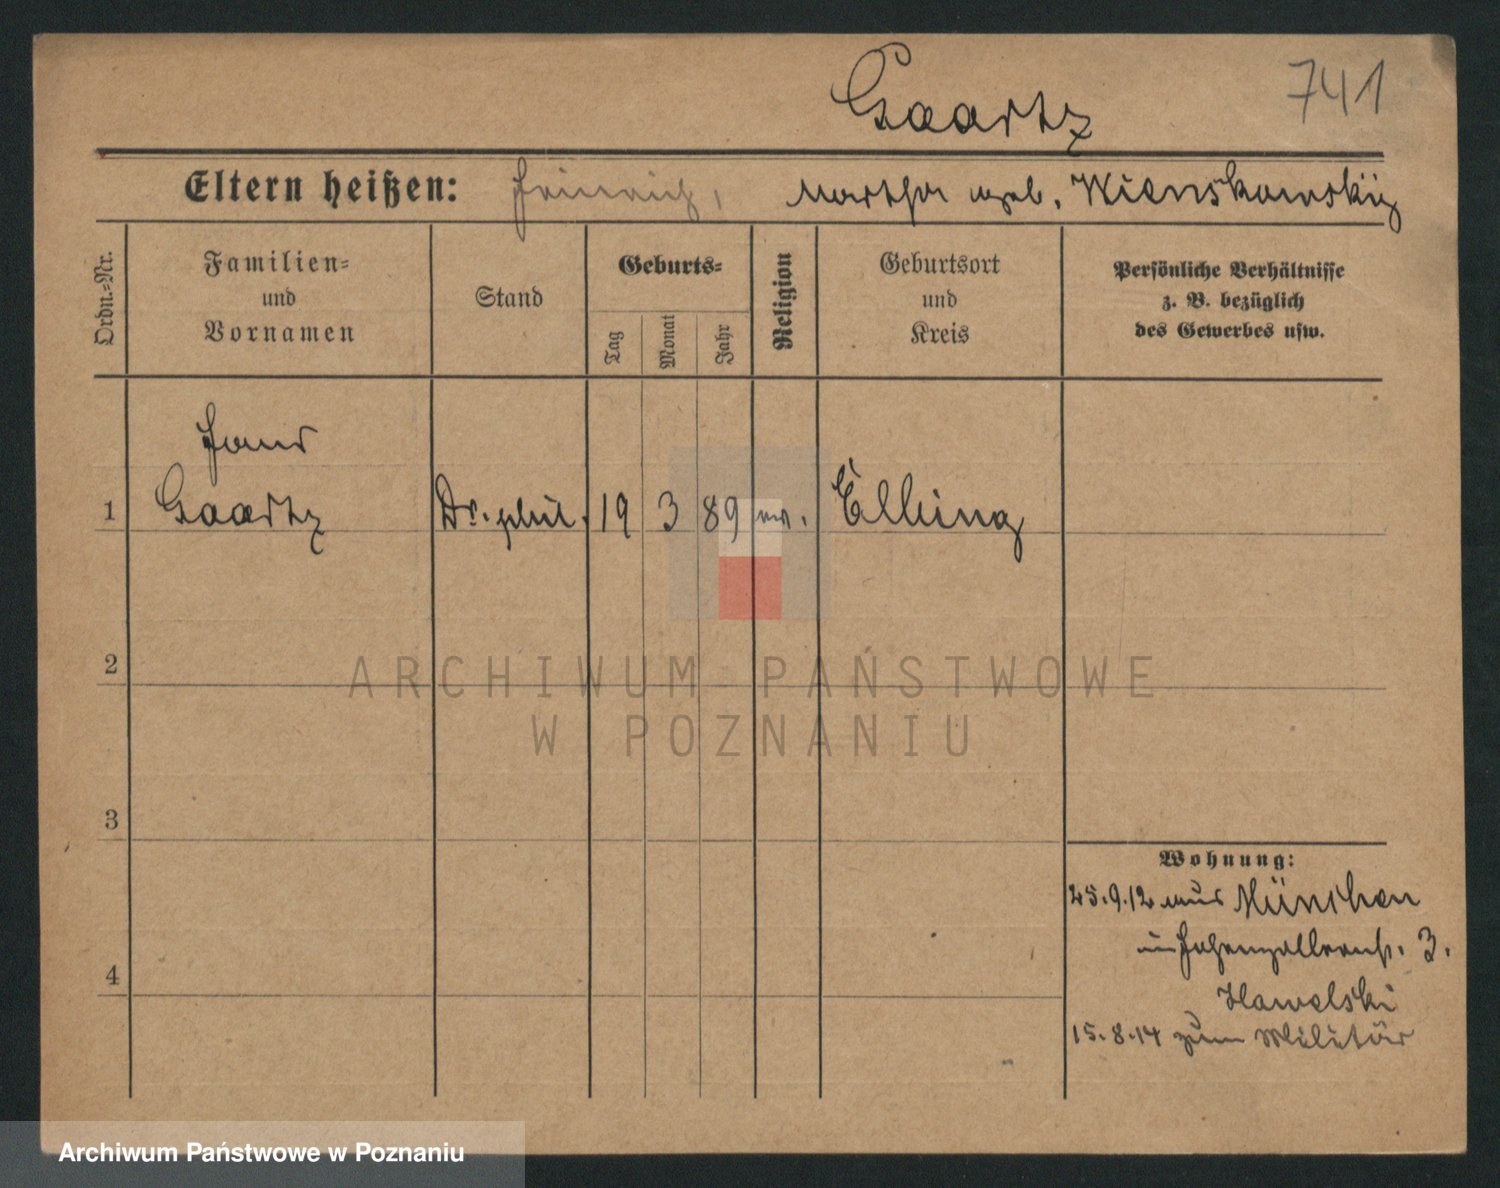 Gaartz 741
Eltern heißen: Heinrich, Martha geb. Wienskowski
Ordn.-Nr.
Familien-
und
Vornamen
Stand
Geburts-
Tag
Monat
Jahr
Religion
Geburtsort
und
Kreis
Persönliche Verhältnisse
z. B. bezüglich
des Gewerbes usw.
Hans
1 Gaartz Dr. phil. 19 3 89 ev. Elbing
2
3
4
Wohnung:
25.9.12 aus München
Hohenzollernstr. 3.
Hawelski
15.8.14 zum Militär
ARCHIWUM PAŃSTWOWE
W POZNANIU
Archiwum Państwowe w Poznaniu